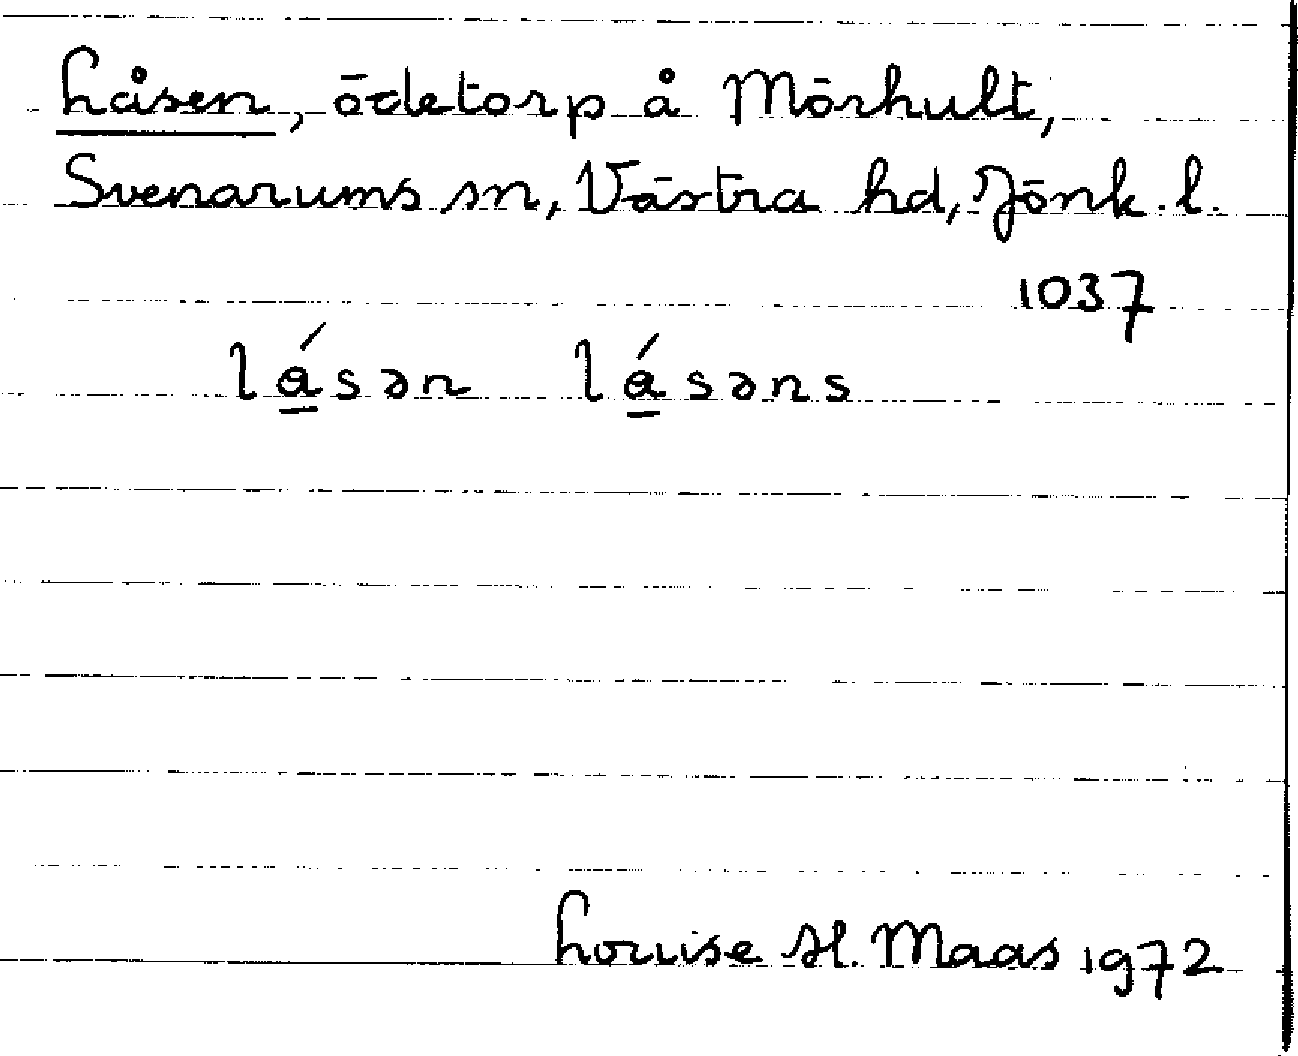 Låsen, ödetorp å Mörhult,
Svenarums sn, Västra hd, Jönk. l.
1037
lásən lásəns
Louise H. Maas 1972